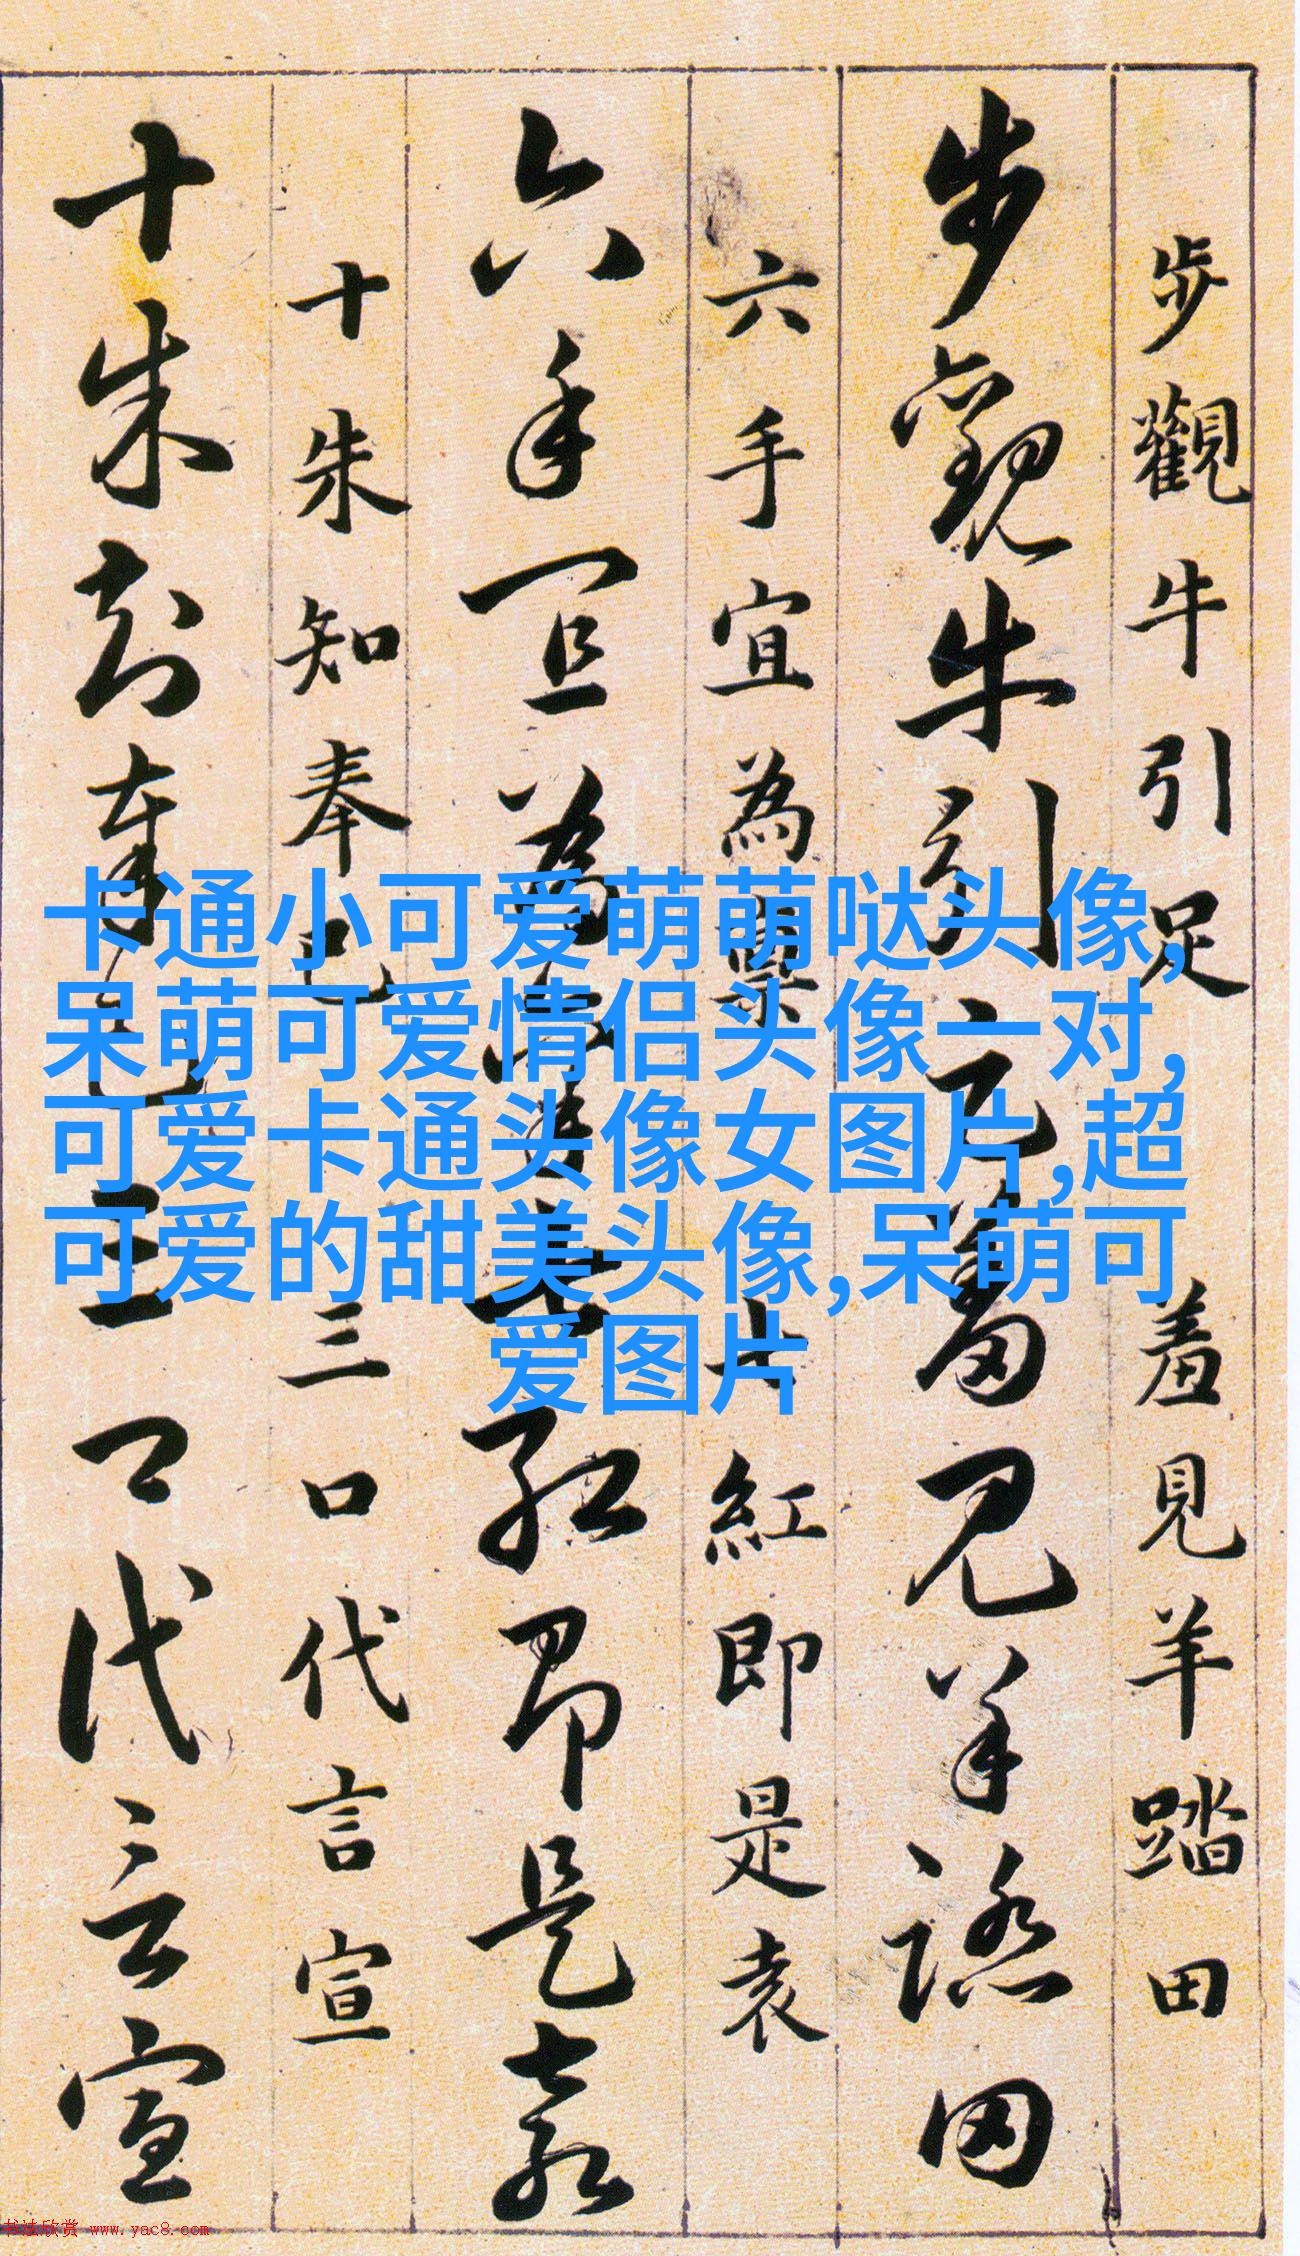 步觀牛引足羞見羊踏田
步觀牛引足羞見羊踏田
六手宜為稟七紅即是袁
六手宜為稟七紅即是袁
十朱知奉已三口代言宣
十朱知奉已三口代言宣
卡通小可爱萌萌哒头像,
呆萌可爱情侣头像一对,
可爱卡通头像女图片,超
可爱的甜美头像,呆萌可
爱图片
书法欣赏 www.yac8.com